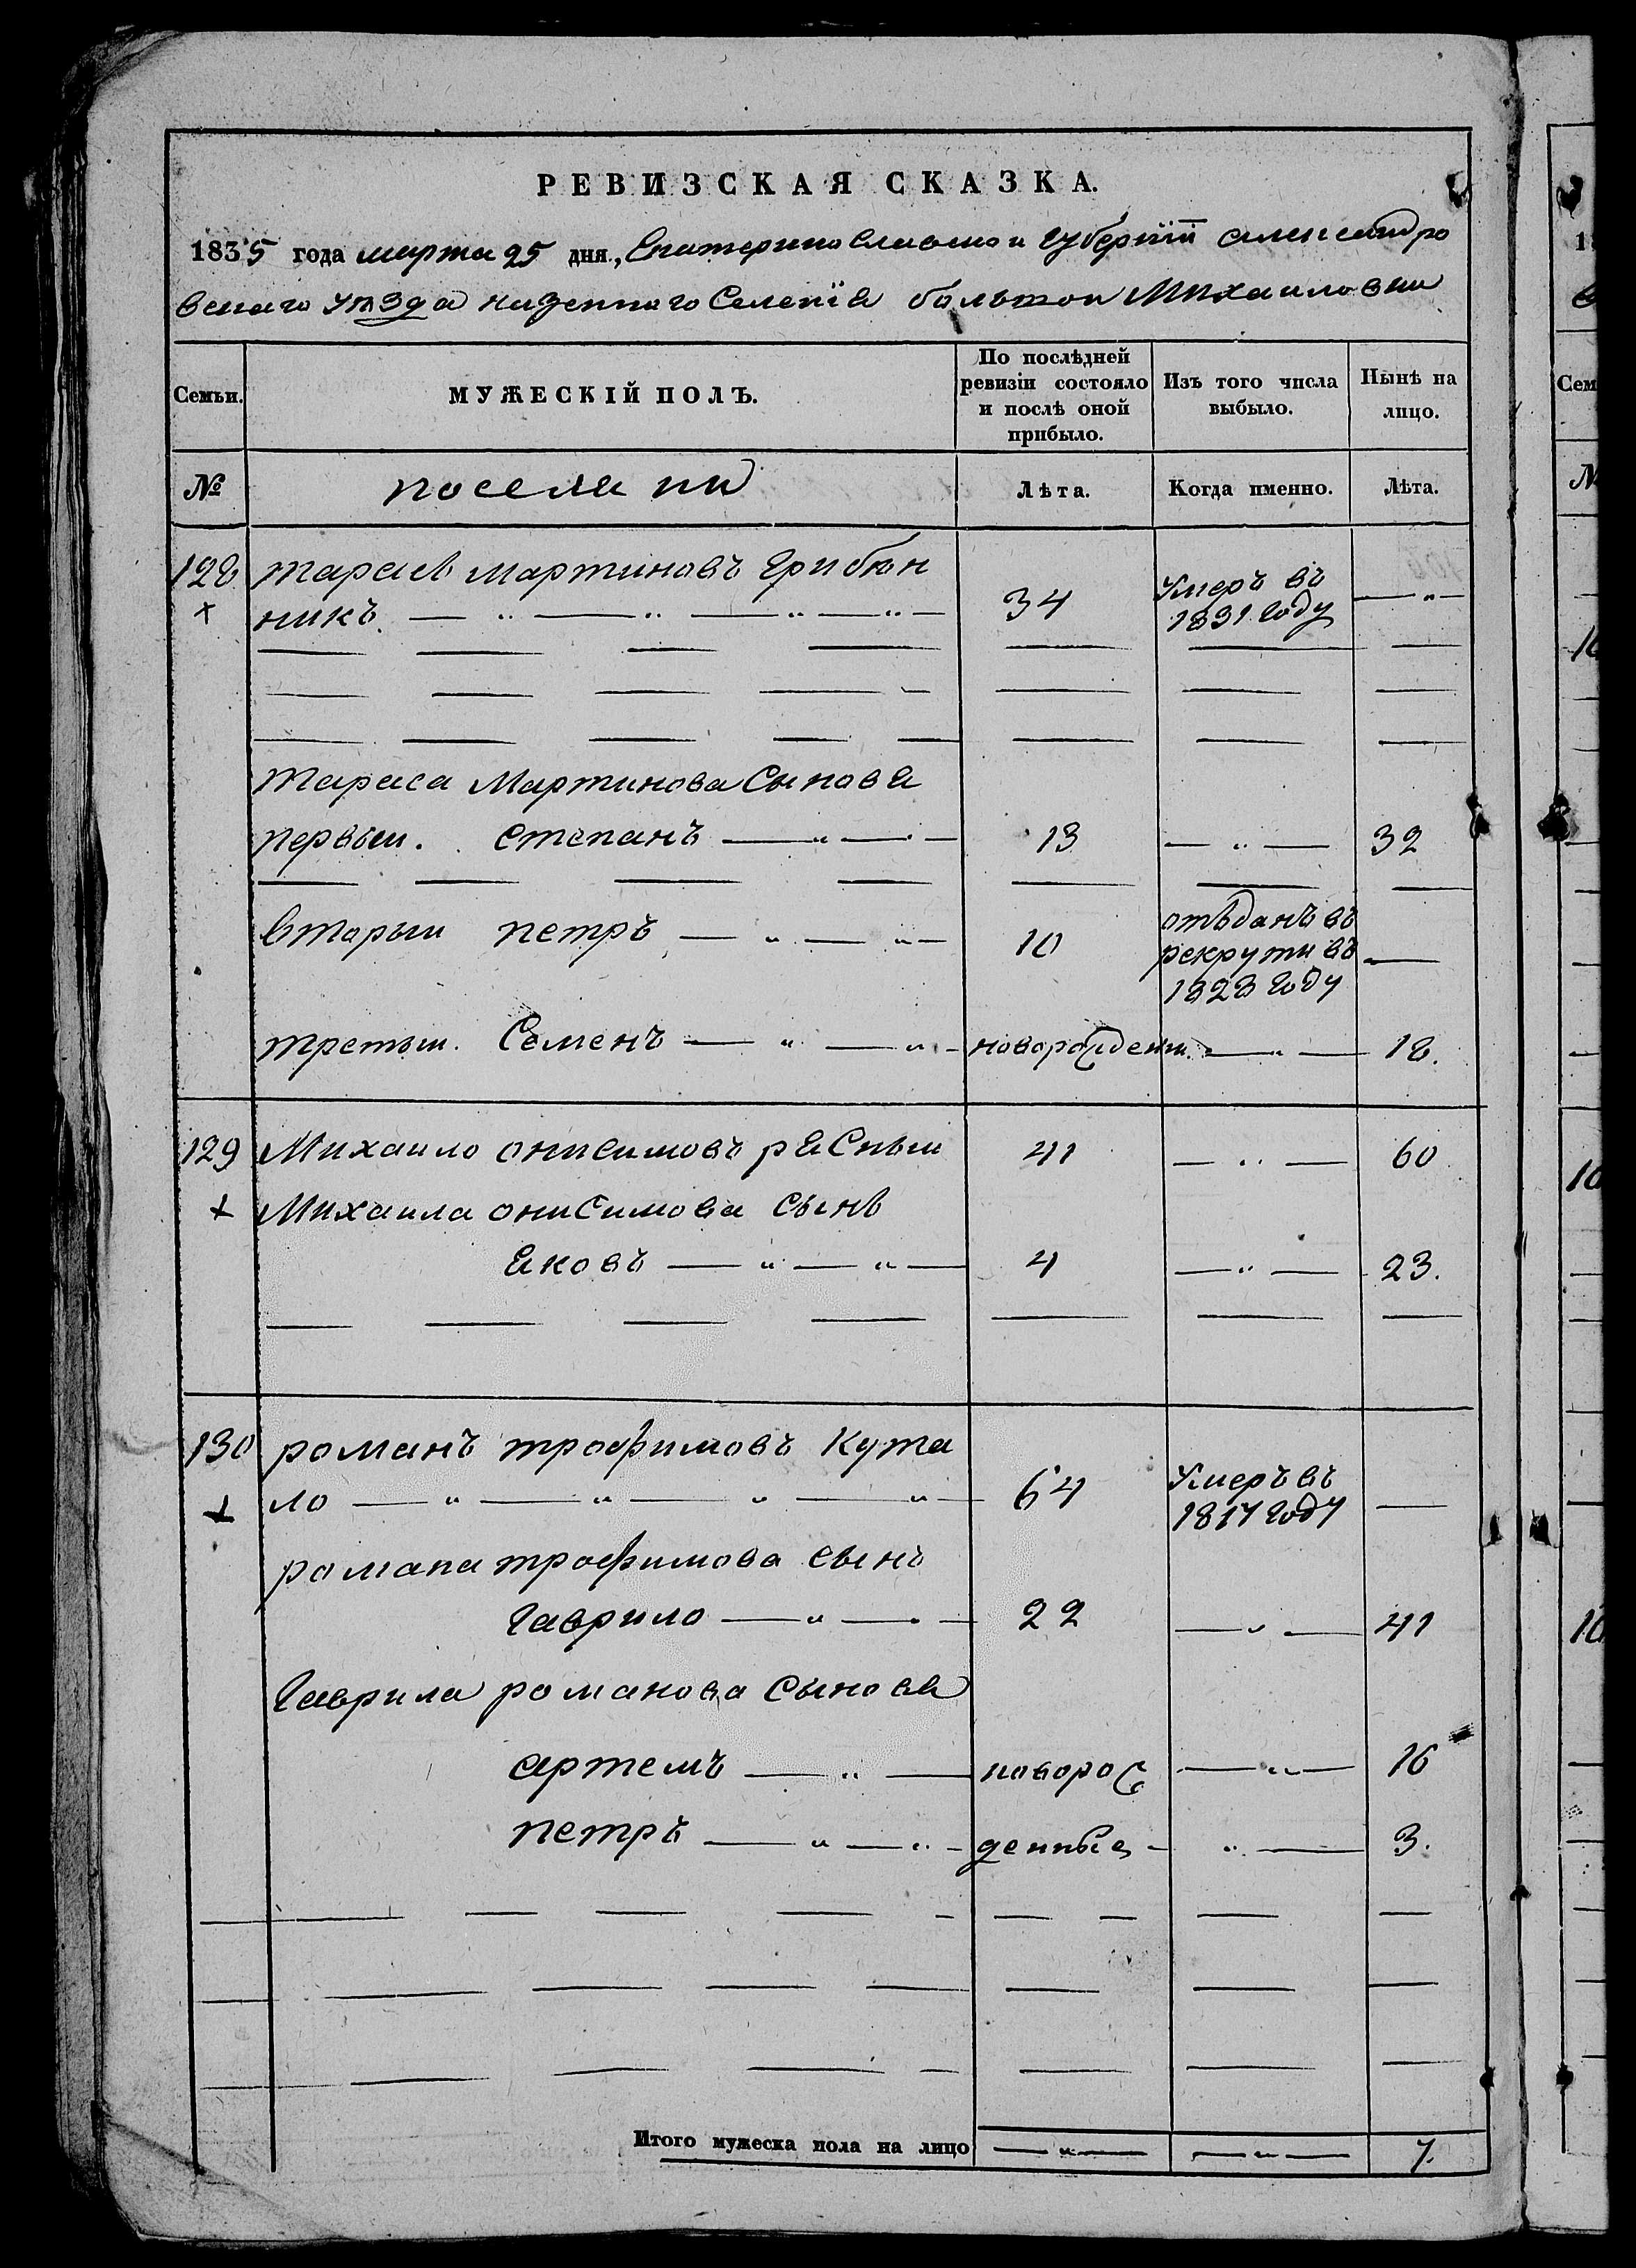 РЕВИЗСКАЯ СКАЗКА.
1835 года марта 25 дня, Екатеринославской губернїи александро
вскаго уѣзда казенного Селенїя большой Михайловки
Семьи. МУЖЕСКІЙ ПОЛЪ. По послѣдней ревизіи состояло и послѣ оной прибыло. Изъ того числа выбыло. Нынѣ на лицо.
№ поселяни Лѣта. Когда именно. Лѣта.
128 тарасъ мартиновъ грибюн
никъ 34 Умеръ въ 1831 году
Тараса Мартинова Сыновя
первый. степанъ 13 32
вторый петръ 10 отъданъ въ рекрути въ 1828 году
третый. Семенъ новорожденн. 18.
129 Михаило онисимовъ рясный 41 60
Михаила онисимова сынъ
яковъ 4 23.
130 романъ трофимовъ Кута
ло 64 Умеръ въ 1817 году
романа трофимова сынъ
гаврило 22 41
Гаврила романова сыновя
артемъ оворож 16
петръ денные 3.
Итого мужеска пола на лицо 7.
10
10
10